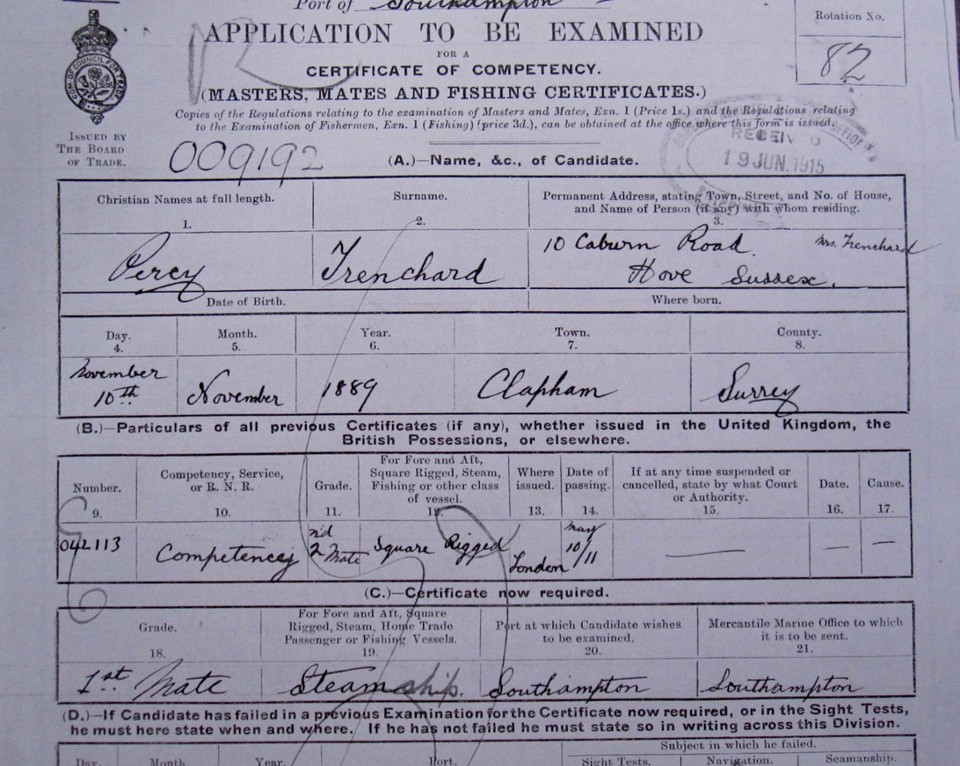 Port of Southampton
APPLICATION TO BE EXAMINED
FOR A
CERTIFICATE OF COMPETENCY.
(MASTERS, MATES AND FISHING CERTIFICATES.)
Copies of the Regulations relating to the examination of Masters and Mates, Exn. 1 (Price 1s.) and the Regulations relating
to the Examination of Fishermen, Exn. 1 (Fishing) (price 3d.), can be obtained at the office where this form is issued.
Rotation No.
82
ISSUED BY
THE BOARD
OF TRADE.
009192
RECEIVED
19 JUN. 1915
(A.)—Name, &c., of Candidate.
Christian Names at full length.
1.
Surname.
2.
Permanent Address, stating Town, Street, and No. of House,
and Name of Person (if any) with whom residing.
3.
Percy
Trenchard
10 Caburn Road. Mrs. Trenchard
Hove Sussex.
Date of Birth.
Where born.
Day.
4.
Month.
5.
Year.
6.
Town.
7.
County.
8.
November
10th
November
1889
Clapham
Surrey
(B.)—Particulars of all previous Certificates (if any), whether issued in the United Kingdom, the
British Possessions, or elsewhere.
Number.
9.
Competency, Service,
or R. N. R.
10.
Grade.
11.
For Fore and Aft,
Square Rigged, Steam,
Fishing or other class
of vessel.
12.
Where
issued.
13.
Date of
passing.
14.
If at any time suspended or
cancelled, state by what Court
or Authority.
15.
Date.
16.
Cause.
17.
042113
Competency
2nd Mate
Square Rigged
London
May
10/11
—
—
—
(C.)—Certificate now required.
Grade.
18.
For Fore and Aft, Square
Rigged, Steam, Home Trade
Passenger or Fishing Vessels.
19.
Port at which Candidate wishes
to be examined.
20.
Mercantile Marine Office to which
it is to be sent.
21.
1st Mate
Steamship.
Southampton
Southampton
(D.)—If Candidate has failed in a previous Examination for the Certificate now required, or in the Sight Tests,
he must here state when and where. If he has not failed he must state so in writing across this Division.
Day.
Month.
Year.
Port.
Subject in which he failed.
Sight Tests.
Navigation.
Seamanship.